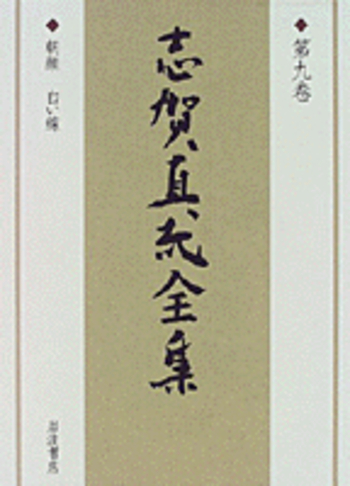 第九巻
志賀直哉全集
朝顔 白い線
岩波書店